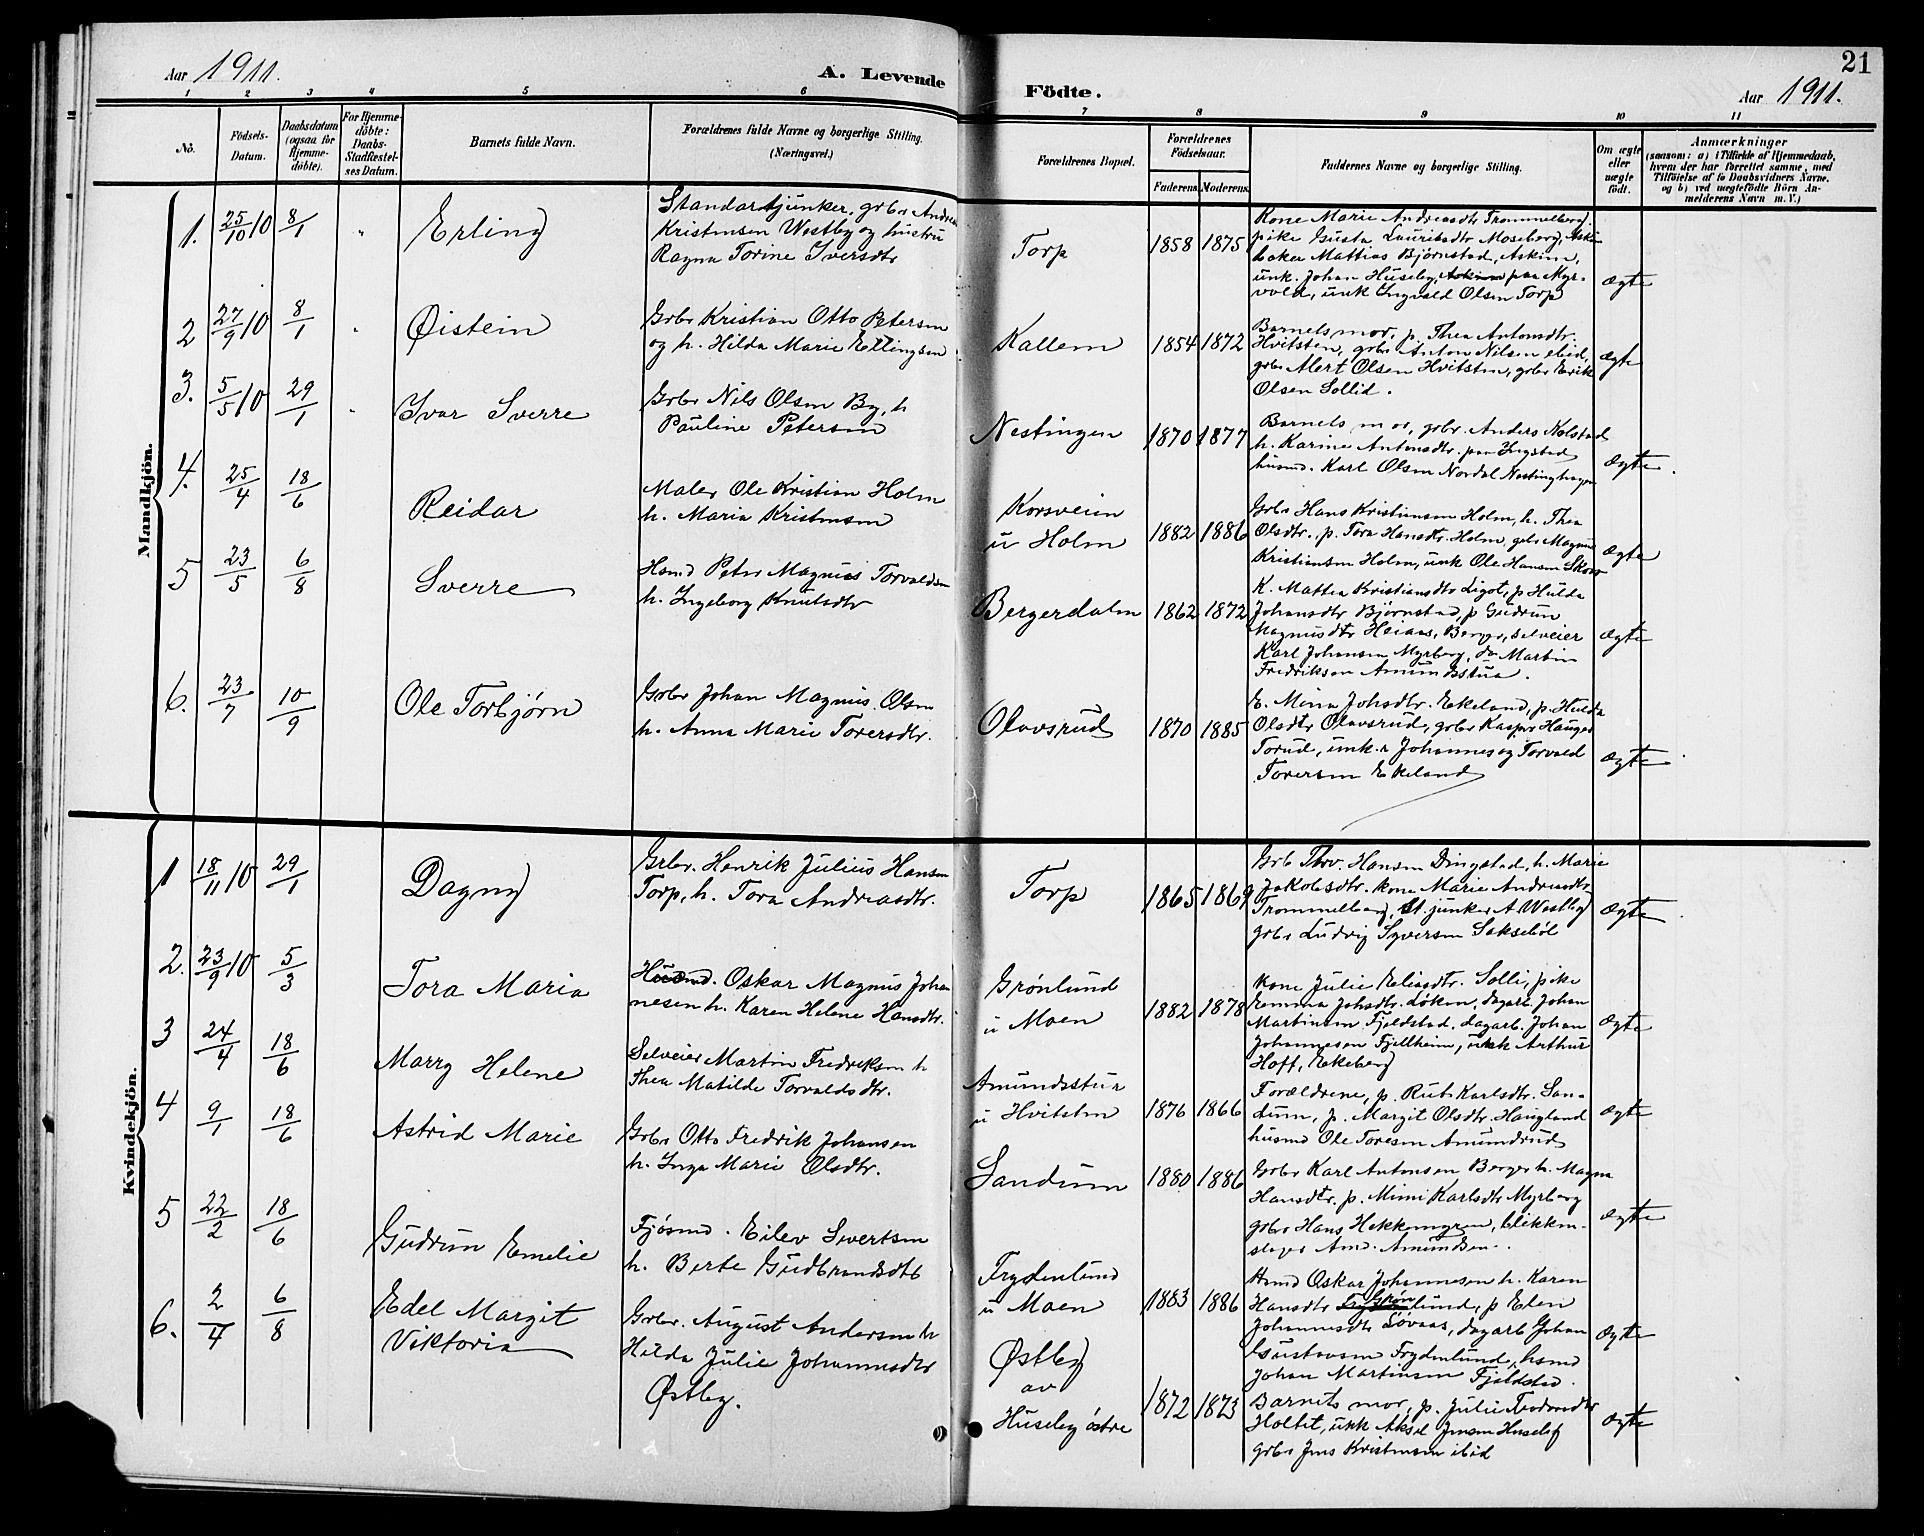 21
Aar 1911.
A. Levende
Födte.
Aar 1911.
1 2 3 4 5 6 7 8 9 10 11
No.
Födsels-
Datum.
Daabsdatum
(ogsaa for
Hjemme-
döbte).
For Hjemme-
döbte:
Daabs-
Stadfæstel-
ses Datum.
Barnets fulde Navn.
Forældrenes fulde Navne og borgerlige Stilling.
(Næringsvei.)
Forældrenes Bopæl.
Forældrenes
Födselsaar.
Faderens. Moderens.
Faddernes Navne og borgerlige Stilling.
Om ægte
eller
uægte
födt.
Anmærkninger
(saasom: a) i Tilfælde af Hjemmedaab,
hvem der har forrettet samme, med
Tilföielse af to Daabsvidners Navne,
og b) ved uegtefödte Börn An-
melderens Navn m. V.)
Mandkjön.
1. 25/10 10 8/1 " Erling
Standartjunker, grbr Andreas
Kristensen Westby og hustru
Ragna Torine Iversdtr
Torp 1858 1875
Kone Marie Andreasdtr Trommelberg
pike Gusta Lauritsdtr Moseberg, Askim
baker Mattias Bjørnstad, Askim,
unk. Johan Huseby, Askim paa Myr-
vold, unk Ingvald Olsen Torp
ægte
2 27/9 10 8/1 " Øistein
Grbr Kristian Otto Petersen
og h. Hilda Marie Ellingsen
Kallem 1854 1872
Barnets mor, p. Thea Antonsdtr.
Hvitsten, grbr Anton Nilsen ibid,
grbr Mert Olsen Hvitsten, grbr Erik
Olsen Sollid.
ægte
3. 5/5 10 29/1 " Ivar Sverre
Grbr Nils Olsen By, h
Pauline Petersen
Nestingen 1870 1877
Barnets mor, grbr. Anders Kolstad
h. Karine Antonsdtr. paa Ingstad
husmd. Karl Olsen Nordal Nestinghagen
ægte.
4. 25/4 18/6 Reidar
Maler Ole Kristian Holm
h. Maria Kristensen
Korsveien
u Holm 1882 1886
Grbr Hans Kristiansen Holm, h. Thea
Olsdtr. p. Tora Hansdtr. Holm, grbr Magnus
Kristiansen Holm, unk Ole Hansen
ægte
5 23/5 6/8 Sverre
Hsmd Peter Magnus Torvaldsen
h. Ingeborg Knutsdtr
Bergerdalen 1862 1872
K. Mattea Kristiansdtr Ligot, p Hulda
Johansdtr Bjørnstad, p Gudrun
Magnusdtr Heiaas, Berger, selveier
Karl Johansen Myrberg, do Martin
Fredriksen Amundsstua.
ægte
6. 23/7 10/9 Ole Torbjørn
Grbr Johan Magnus Olsen
h. Anna Marie Toversdtr.
Olavsrud 1870 1885
E. Mina Johsdtr. Ekeland, p. Hulda
Olsdtr Olavsrud, grbr Kasper Hauger
Torud, unk.r Johannes og Torvald
Toversen Ekeland
ægte
Kvindekjön.
1 18/11 10 29/1 Dagny
Grbr. Henrik Julius Hansen
Torp, h. Tora Andreasdtr.
Torp 1865 1869
Grb Thrv. Hansen Dingstad, h. Marie
Jakobsdtr. kone Marie Andreasdtr
Trommelberg, St. junker A Westby
grbr Ludvig Syversen Saksebøl
ægte
2. 23/9 10 5/3 Tora Maria
Husmd. Oskar Magnus Johan
nesen h. Karen Helene Hansdtr.
Grønlund
u Moen 1882 1878
Kone Julie Eliasdtr. Solli, pike
Emma Johsdtr. Løken, dagarb. Johan
Martinsen Fjeldstad. dagarb. Johan
Johannesen Fjellheim, unk Arthur
Hoff, Ekeberg
ægte
3 24/4 18/6 Marry Helene
Selveier Martin Fredriksen h
Thea Matilde Torvaldsdtr.
Amundsstua
u Hvitsten 1876 1866
Forældrene, p. Rut Karlsdtr. San-
dum, p. Margit Olsdtr. Haugland
husmd Ole Toresen Amundrud
ægte
4 9/1 18/6 Astrid Marie
Grbr Otto Fredrik Johansen
h. Inga Marie Olsdtr.
Sandum 1880 1886
Grbr Karl Antonsen Berger h. Magna
Hansdtr. p. Mimi Karlsdtr Myrberg
grbr Hans Hekkemgren, blikken-
slager Amd. Amundsen.
ægte
5 22/2 18/6 Gudrun Emelie
Fjøsmd. Eilev Sivertsen
h. Berte Gudbrandsdtr
Frydenlund
u Moen 1883 1886
Hsmd Oskar Johannesen h. Karen
Hansdtr Grønlund, p Elen
Johannesdtr Løvaas, dagarb Johan
Gustavsen Frydenlund, hsmd
Johan Martinsen Fjeldstad.
ægte
6. 2/4 6/8 Edel Margit
Viktoria
Grbr. August Andersen h
Hilda Julie Johannesdtr
Østby.
Østby
av
Huseby østre 1872 1873
Barnets mor, p. Julie
Holtet, unk Aksel Jensen Huseby
grbr Jens Kristensen ibid
ægte